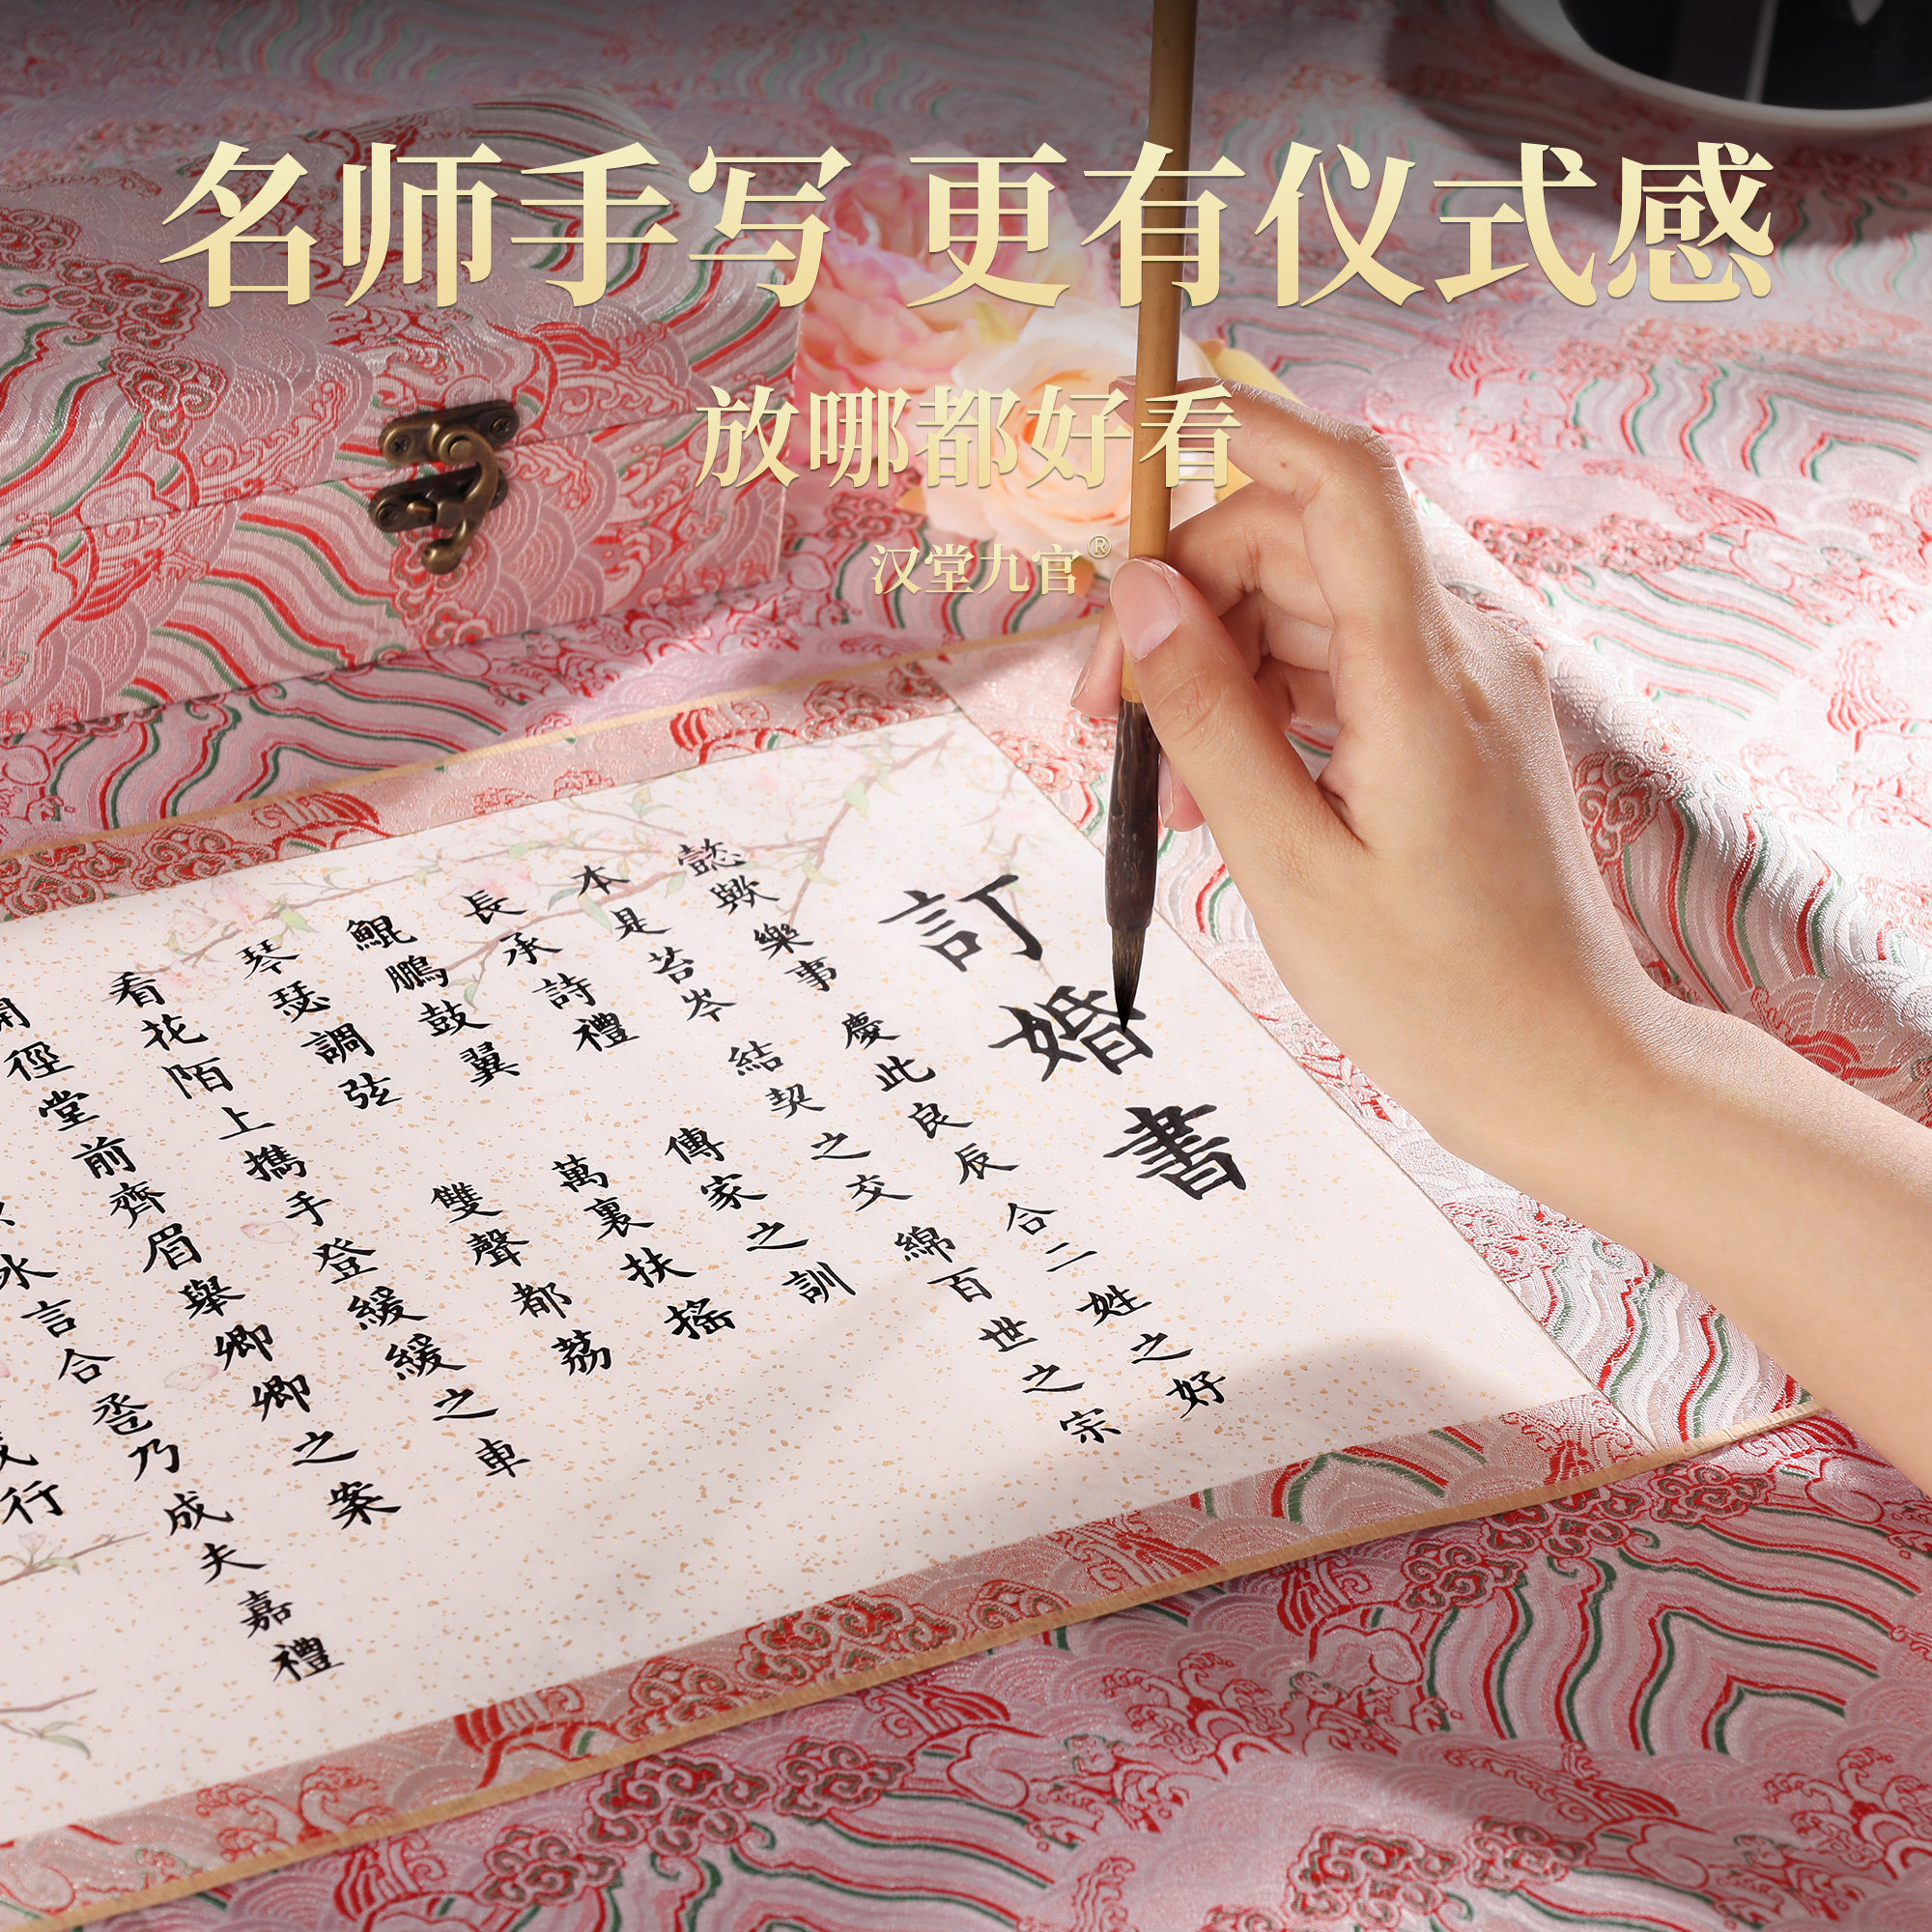 名师手写 更有仪式感
放哪都好看
汉堂九官®
訂婚書
懿歟樂事 慶此良辰 合二姓之好
本是苔岑 結契之交 綿百世之宗
長承詩禮 傳家之訓
鯤鵬鼓翼 萬裏扶搖
琴瑟調弦 雙聲都荔
看花陌上攜手登緩緩之車
開徑堂前齊眉舉卿卿之案
氷言合卺乃成夫嘉禮
行